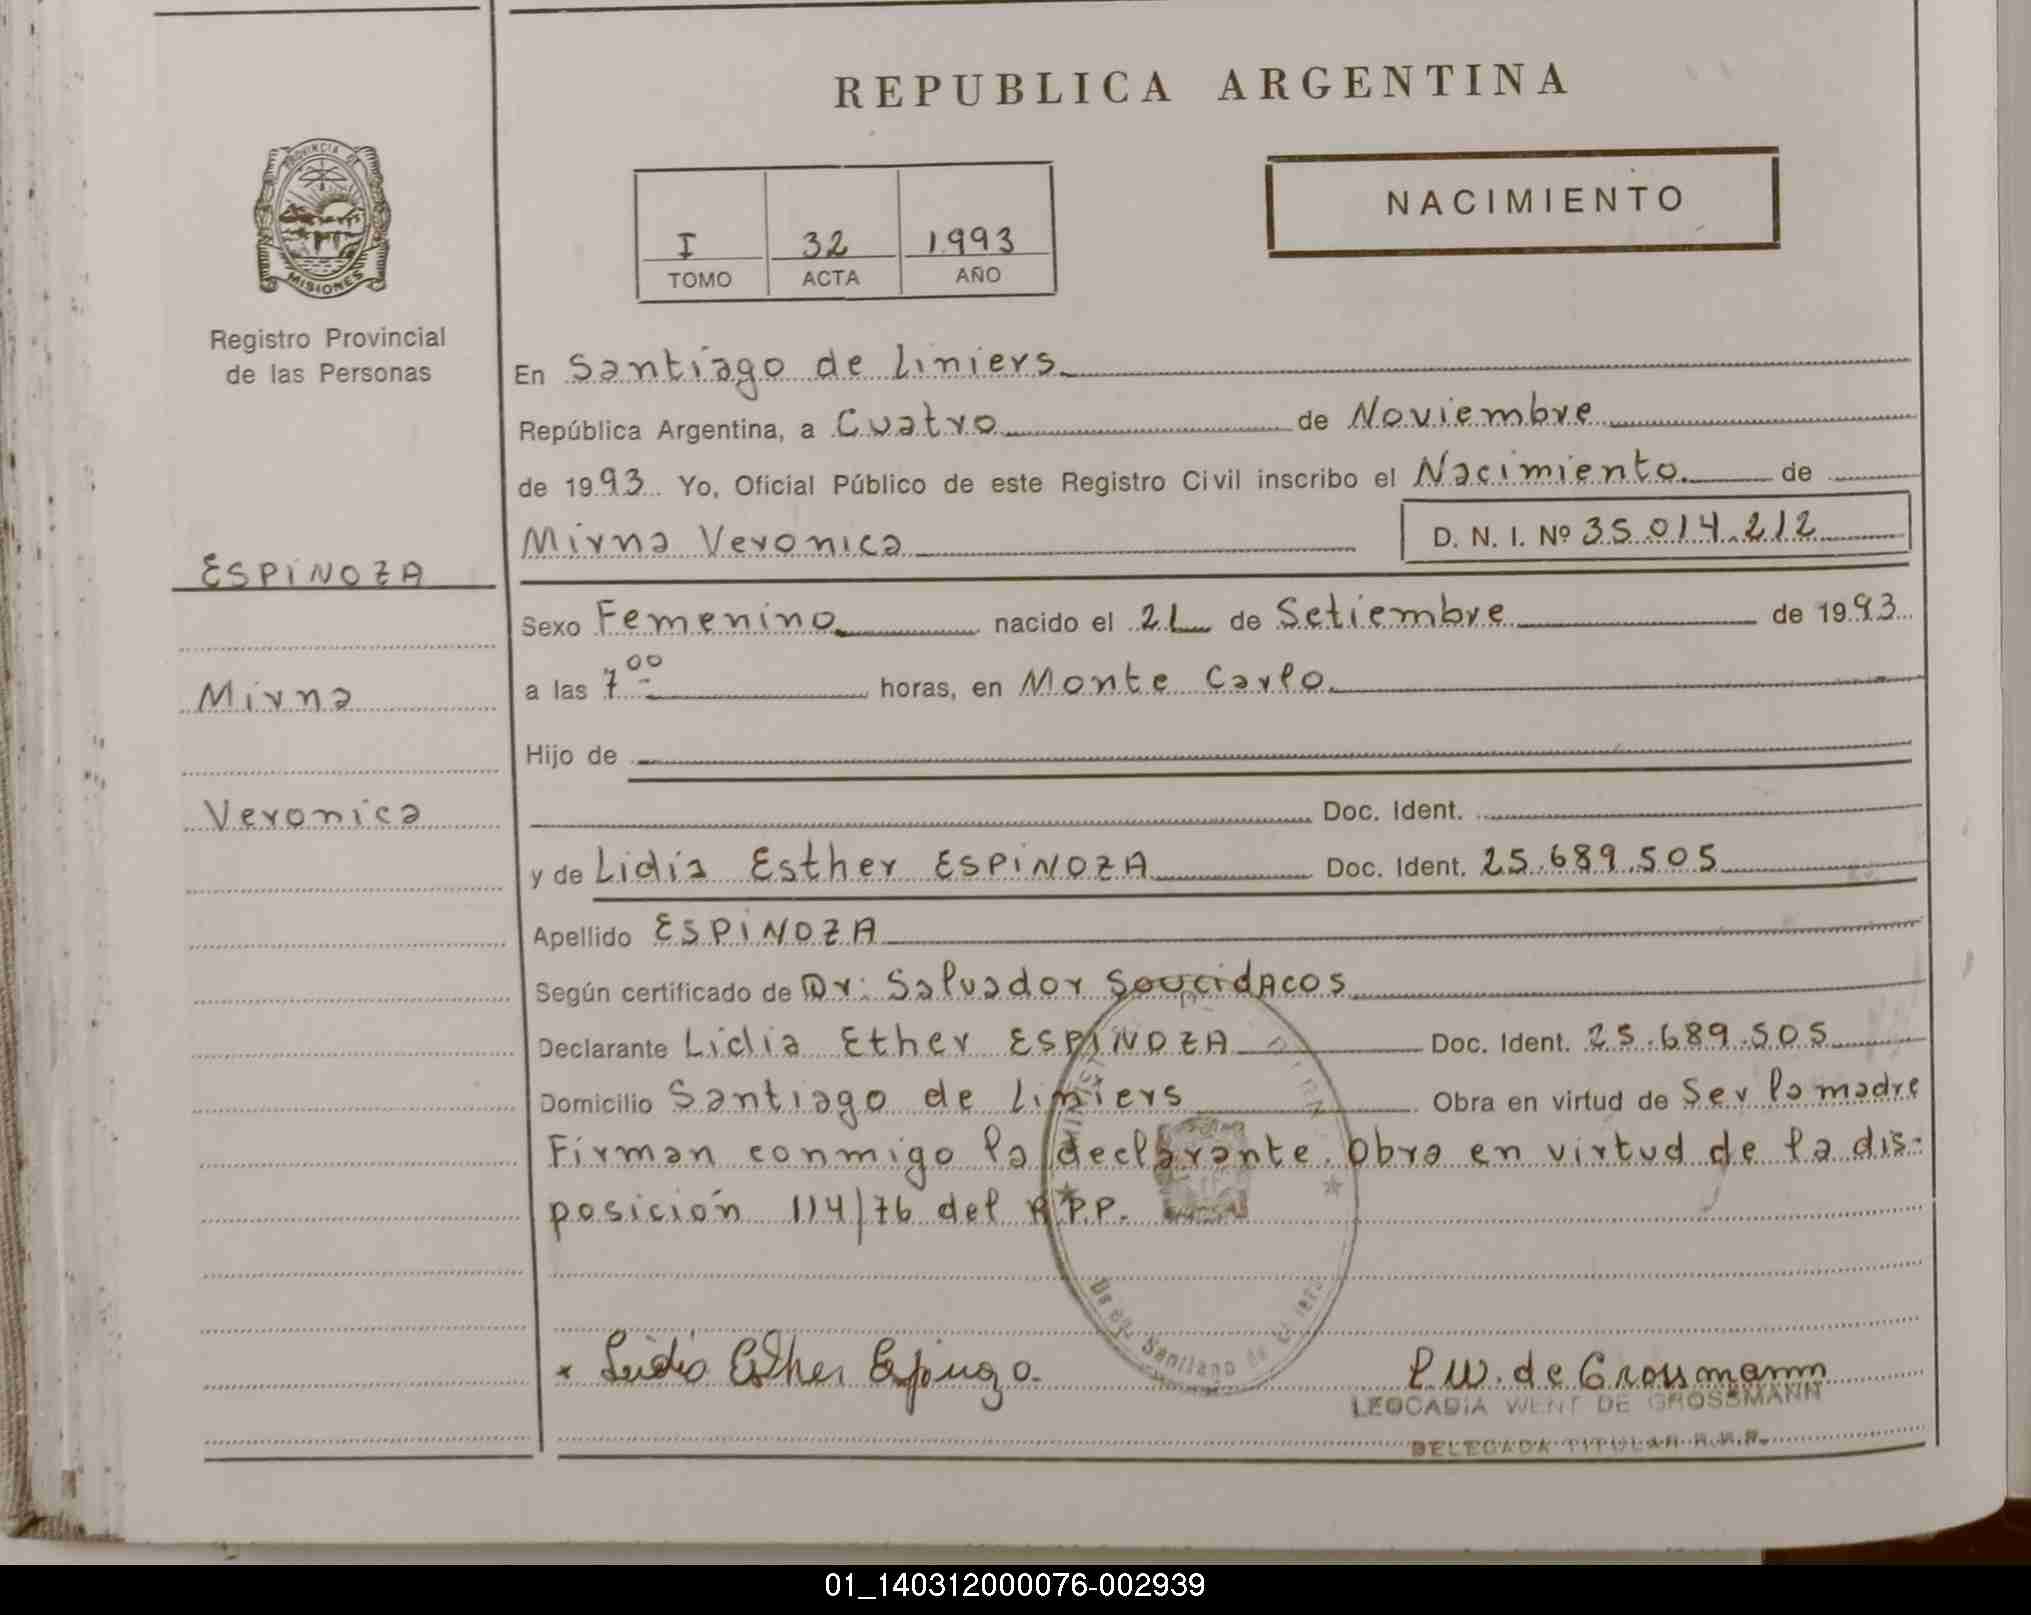 REPUBLICA ARGENTINA
PROVINCIA DE
MISIONES
Registro Provincial
de las Personas
NACIMIENTO
I 32 1993
TOMO ACTA AÑO
En Santiago de Liniers
República Argentina, a Cuatro de Noviembre
de 1993 Yo, Oficial Público de este Registro Civil inscribo el Nacimiento de
Mirna Veronica D. N. I. Nº 35.014.212
ESPINOZA
Mirna
Veronica
Sexo Femenino nacido el 21 de Setiembre de 1993
a las 7 00 horas, en Monte Carlo
Hijo de
Doc. Ident.
y de Lidia Esther ESPINOZA Doc. Ident. 25.689.505
Apellido ESPINOZA
Según certificado de Dr: Salvador
Declarante Lidia Ether ESPINOZA Doc. Ident. 25.689.505
Domicilio Santiago de Liniers Obra en virtud de Ser la madre
Firman conmigo la declarante. Obra en virtud de la dis-
posición 114/76 del R.P.P.
Santiago de
Lidia Esther Espinoza
L W. de Grossmann
LEOCADIA WENT DE GROSSMANN
DELEGADA TITULAR R.P.P.
01_140312000076-002939